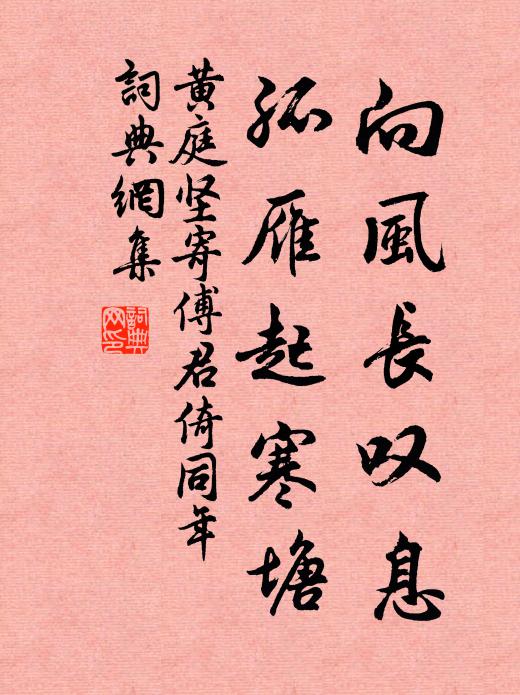 向風長叹息
孤雁起寒塘
黃庭坚寄傅君倚同年
詞典網集
詞典网印